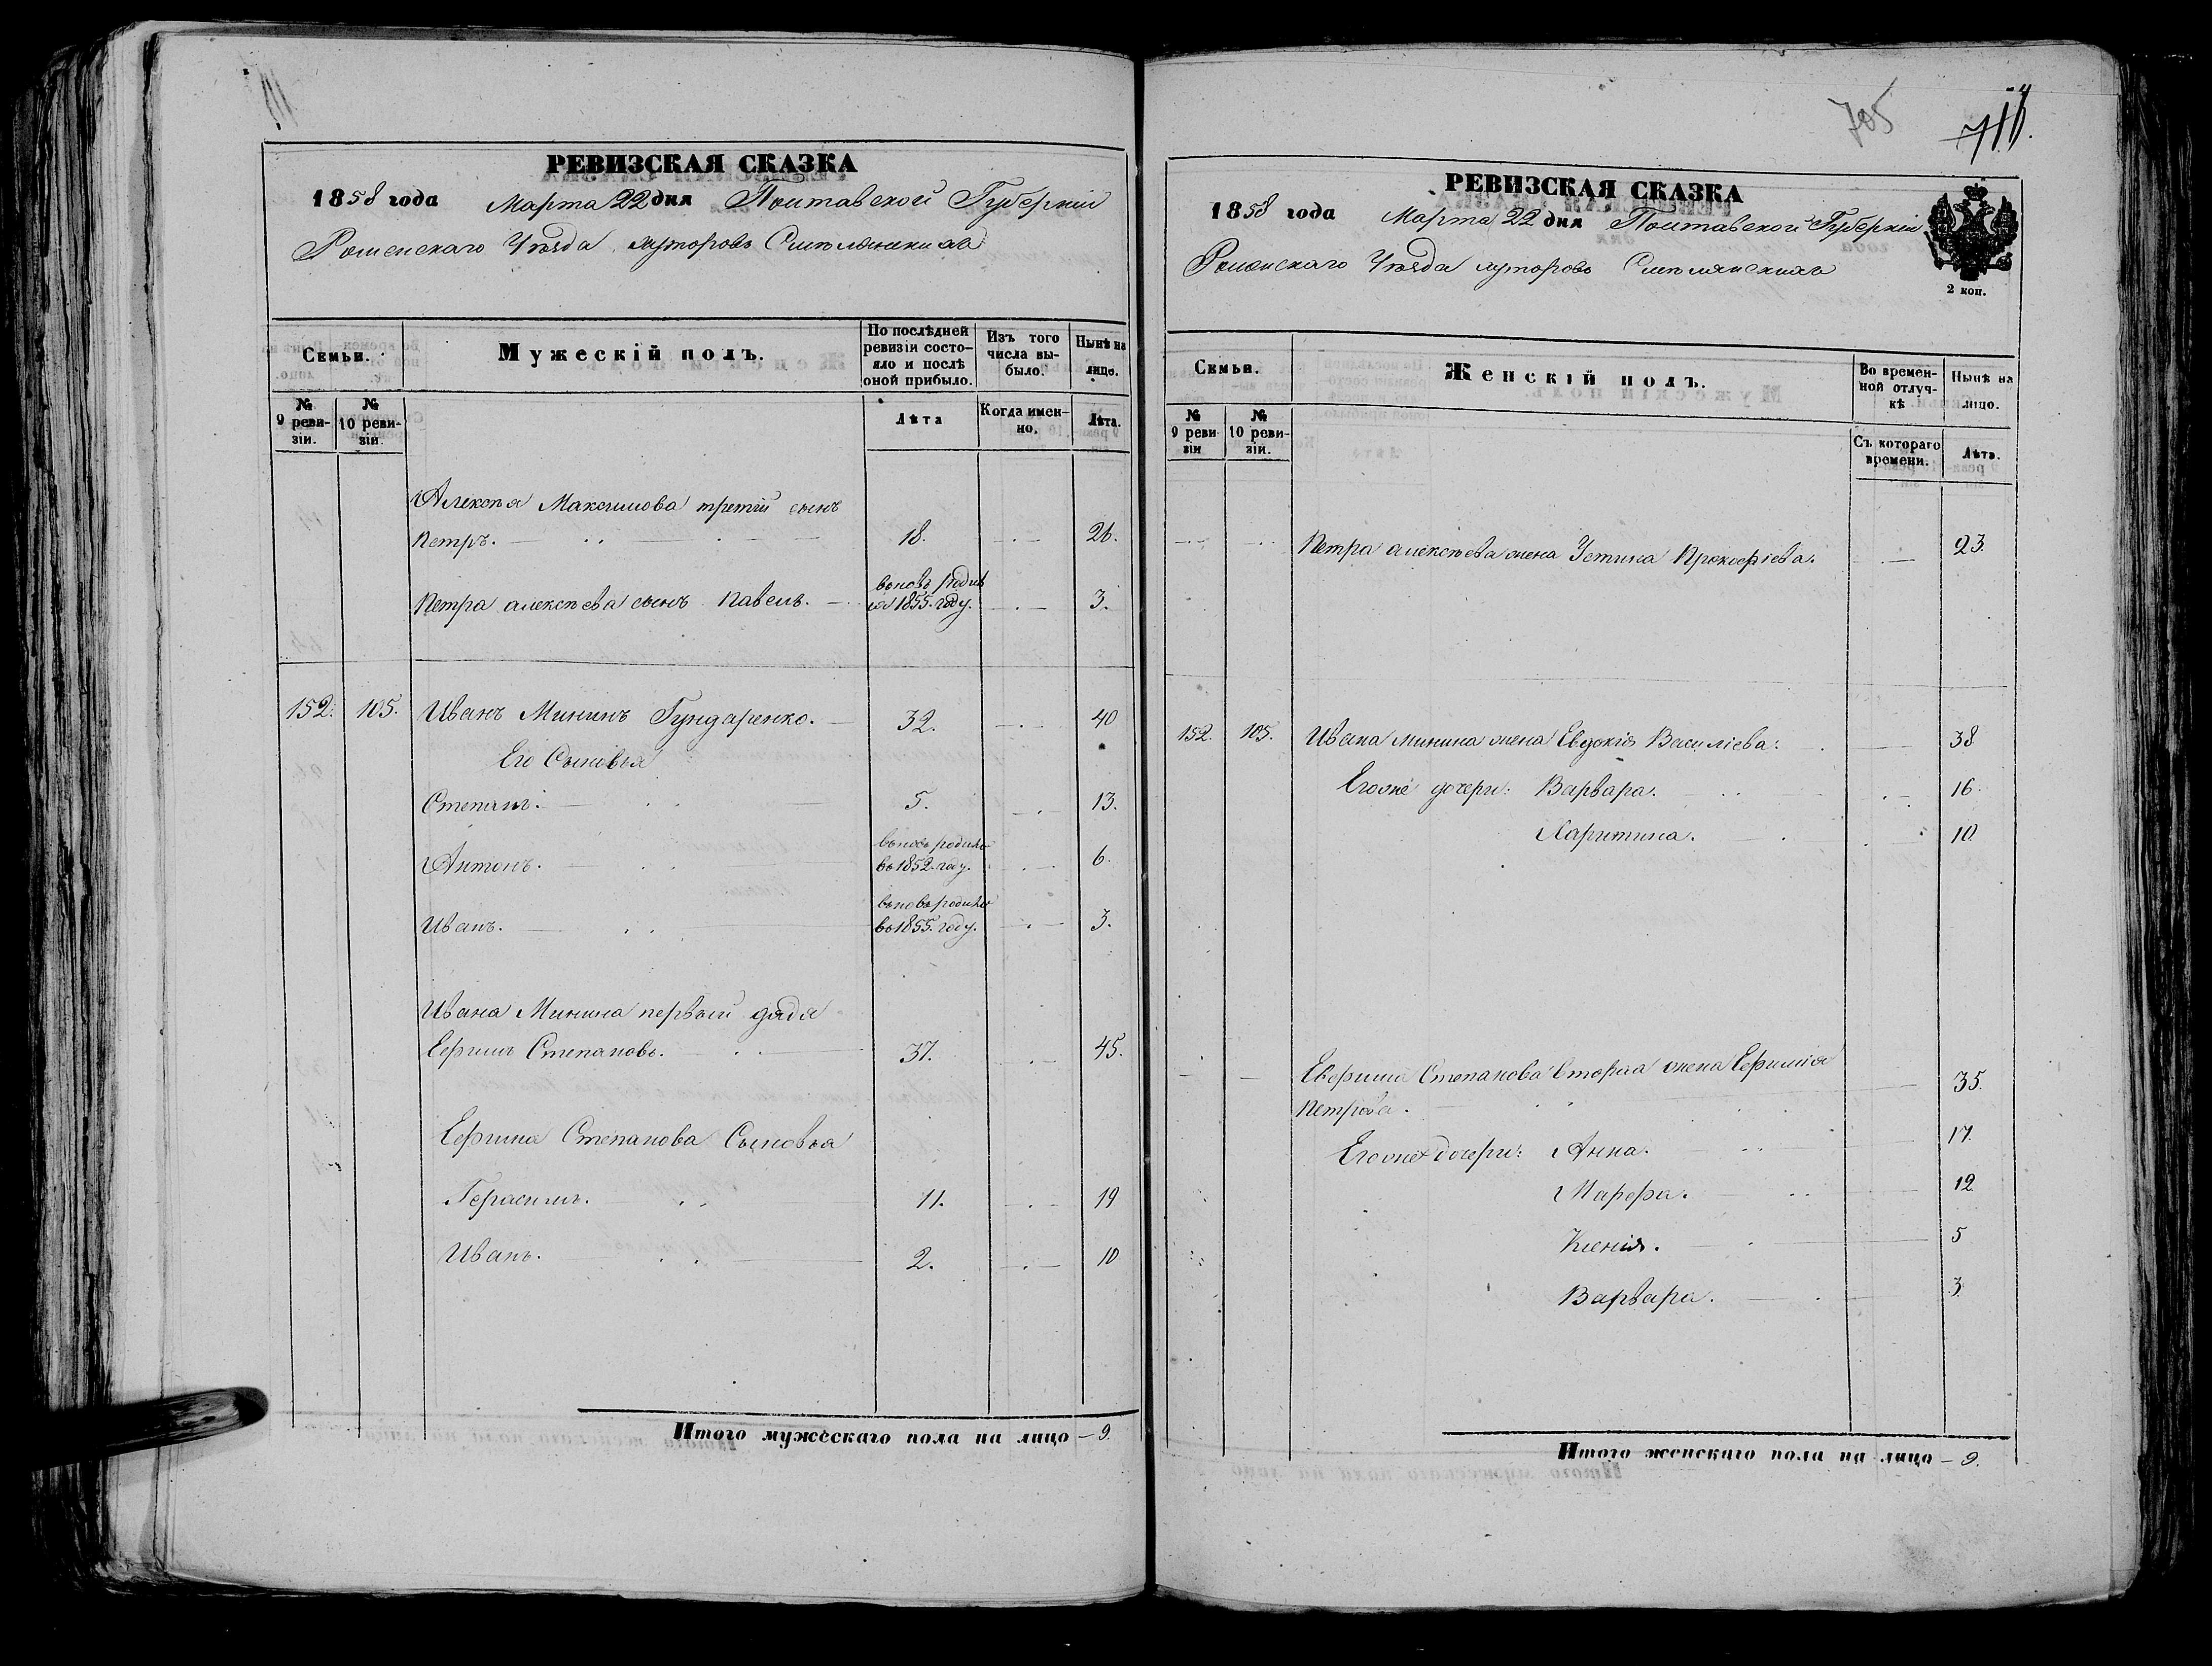 РЕВИЗСКАЯ СКАЗКА
1858 года Марта 22 дня Полтавской Губерніи
Роменскаго Уѣзда хуторовъ Смѣлянскихъ
Семьи.
Мужескій полъ.
По послѣдней ревизіи состояло и послѣ оной прибыло.
Изъ того числа выбыло.
Нынѣ на лицо.
№ 9 ревизіи.
№ 10 ревизіи.
Лѣта
Когда именно.
Лѣта.
Алексѣя Максимова третій сынъ
Петръ. 18. 26.
Петра Алексѣева сынъ Павелъ. вновь родился 1855. году. 3.
152. 105. Иванъ Мининъ Гундаренко. 32. 40
Его Сыновья
Степанъ. 5. 13.
Антонъ. вновь родился въ 1852. году. 6.
Иванъ. вновь родился въ 1855. году. 3.
Ивана Минина первый дядя
Ефимъ Степановъ. 37. 45.
Ефима Степанова Сыновья
Герасимъ. 11. 19
Иванъ. 2. 10
Итого мужескаго пола на лицо – 9.
705
РЕВИЗСКАЯ СКАЗКА
1858 года Марта 22 дня Полтавской Губерніи
Роменскаго Уѣзда хуторовъ Смѣлянскихъ
2 коп.
Семьи.
Женскій полъ.
Во временной отлучкѣ
Нынѣ на лицо.
№ 9 ревизіи
№ 10 ревизіи.
Съ котораго времени.
Лѣта.
Петра Алексѣева жена Устина Прокофіева. 23.
152. 105. Ивана Минина жена Евдокія Василіева. 38
Егоже дочери: Варвара. 16.
Харитина. 10
Ефима Степанова вторая жена Ефимія
Петрова. 35.
Егоже дочери: Анна. 17.
Марфа. 12
Ксенія. 5
Варвара. 3.
Итого женскаго пола на лицо – 9.